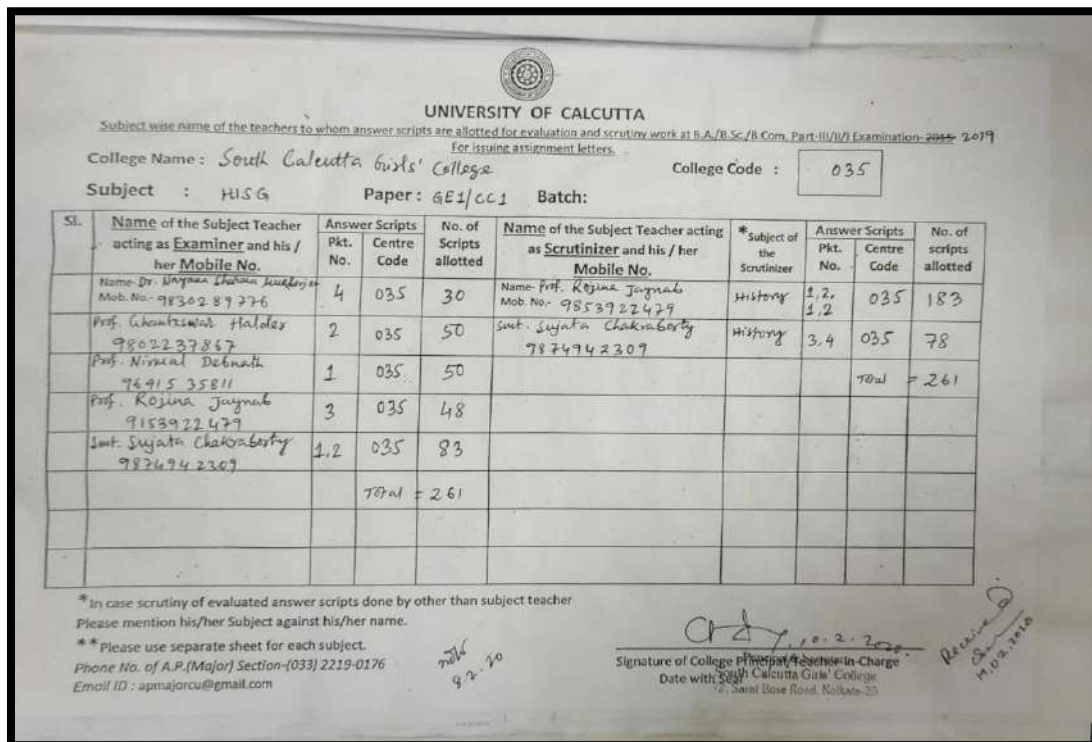 UNIVERSITY OF CALCUTTA
Subject wise name of the teachers to whom answer scripts are allotted for evaluation and scrutiny work at B.A./B.Sc./B.Com. Part-III/II/I Examination- 2015 2019
For issuing assignment letters.
College Name : South Calcutta Girls' College College Code : 035
Subject : HISG Paper : GE1/CC1 Batch:
Sl. Name of the Subject Teacher acting as Examiner and his / her Mobile No. Answer Scripts Pkt. No. Centre Code No. of Scripts allotted Name of the Subject Teacher acting as Scrutinizer and his / her Mobile No. *Subject of the Scrutinizer Answer Scripts Pkt. No. Centre Code No. of scripts allotted
Name- Dr. Sharan 4 035 30 Name- Prof. Rojina Jaynab History 1,2, 035 183
Mob. No.- 9830289776 Mob. No.- 9853922479 1,2
Prof. Halder 2 035 50 Smt. Sujata Chakraborty History 3,4 035 78
9802237867 9874942309
Prof. Nirmal Debnath 1 035 50 Total = 261
96415 35811
Prof. Rojina Jaynab 3 035 48
9153922479
Smt. Sujata Chakraborty 1,2 035 83
9874942309
Total = 261
*In case scrutiny of evaluated answer scripts done by other than subject teacher
Please mention his/her Subject against his/her name.
**Please use separate sheet for each subject.
Phone No. of A.P.(Major) Section-(033) 2219-0176
Email ID : apmajorcu@gmail.com
8.2.20
10.2.2020
Signature of College Principal/Teacher-in-Charge
Date with Seal
South Calcutta Girls' College
72, Sarat Bose Road, Kolkata-25
Received